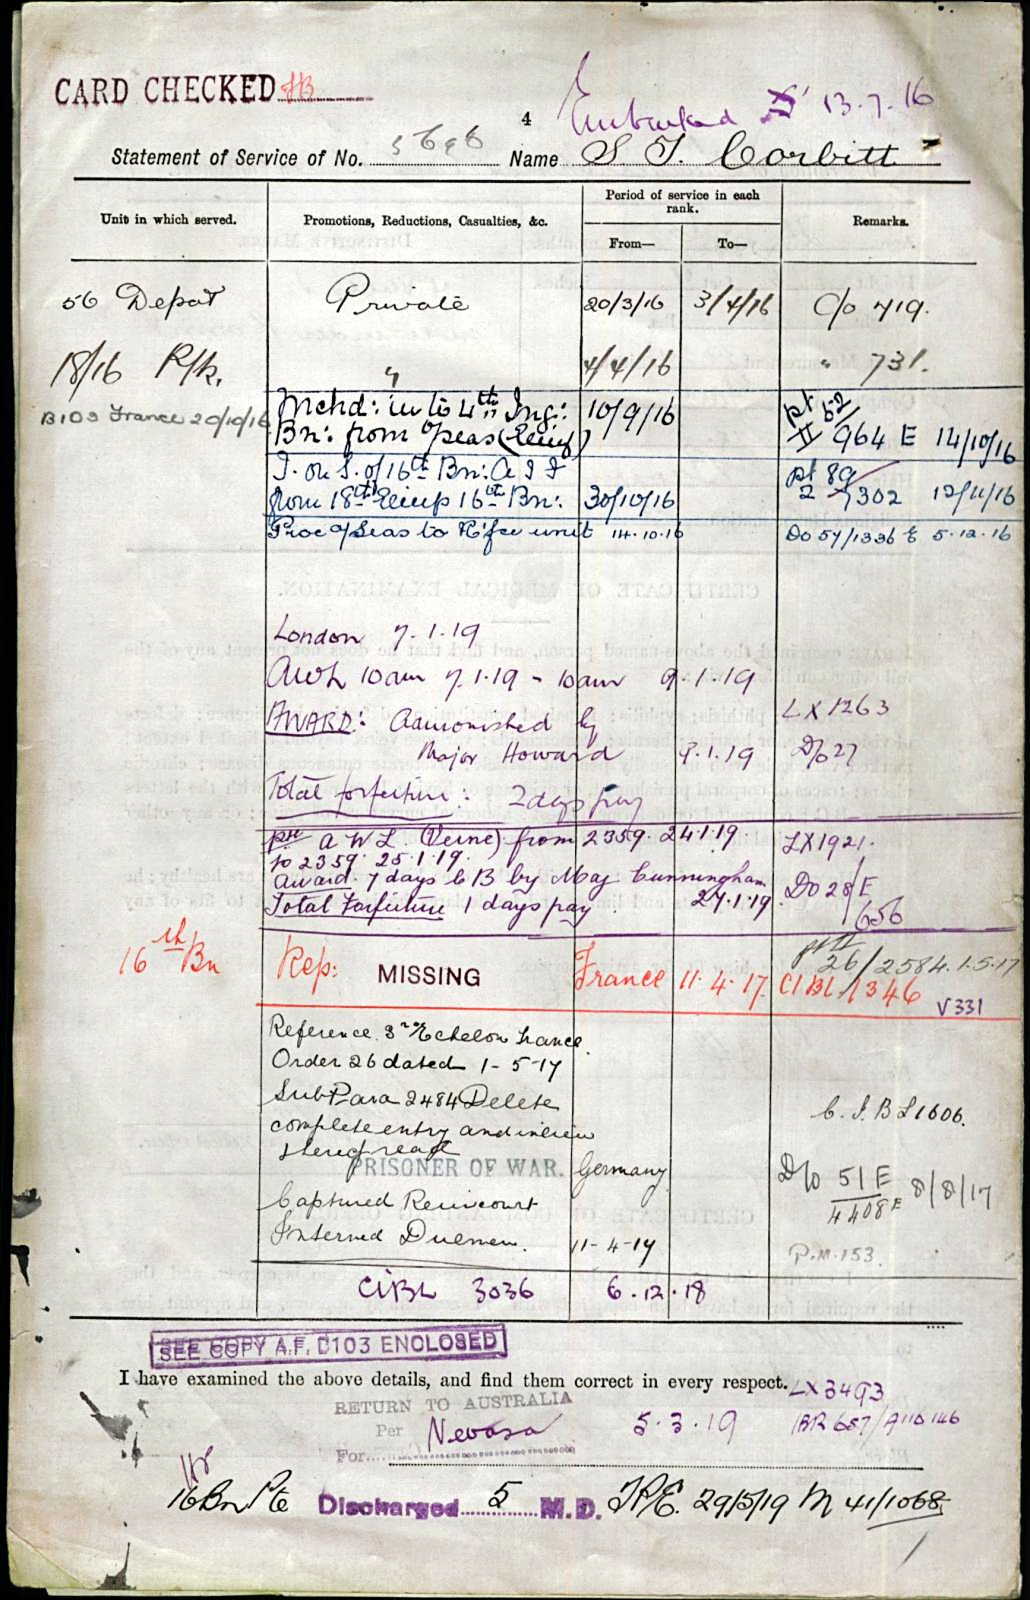 CARD CHECKED HB
4 Embarked 13.7.16
Statement of Service of No. 5696 Name S T. Corbitt
Unit in which served. Promotions, Reductions, Casualties, &c. Period of service in each rank. Remarks.
From— To—
56 Depot Private 20/3/16 3/4/16 C/o 719.
18/16 R/k. " 4/4/16 " 731.
B103 France 20/10/16
Mchd: in to 4th Trng: 10/9/16 pt 52
Bn: from O/seas (Reinf) II 964 E 14/10/16
T. on S. of 16th Bn: A I F pt 89
from 18th Reinfs 16th Bn: 30/10/16 2 7302 12/11/16
Proc O/Seas to R'fce unit 14.10.16 Do 54/1336 E 5.12.16
London 7.1.19
AWL 10am 7.1.19 - 10am 9.1.19
AWARD: Admonished by LX1263
Major Howard 9.1.19 D/o 27
Total forfeiture: 2 days pay
A W L (Verne) from 2359. 24.1.19. LX1921.
to 2359. 25.1.19.
Award. 7 days CB by Maj Cunningham Do 28/E
Total Forfeiture 1 days pay 27.1.19 656
16th Bn Rep: MISSING France 11.4.17. pt II 26/2584. 1.5.17
CIBL 1346 V331
Reference 3rd Echelon France
Order 26 dated 1-5-17
Sub Para 2484 Delete
complete entry and in lieu C.I.B L 1606.
thereof read
PRISONER OF WAR. Germany D/o 51 E 8/8/17
4408 E
Captured Reincourt
Interned Dulmen. 11-4-17 P.M.153.
CIBL 3036 6.12.18
SEE COPY A.F. B103 ENCLOSED
I have examined the above details, and find them correct in every respect. LX3493
RETURN TO AUSTRALIA
Per Nevasa 5.3.19 BR 687/A110146
For
16 Bn Pte Discharged 5 M.D. T.P.E. 29/5/19 M 41/1068